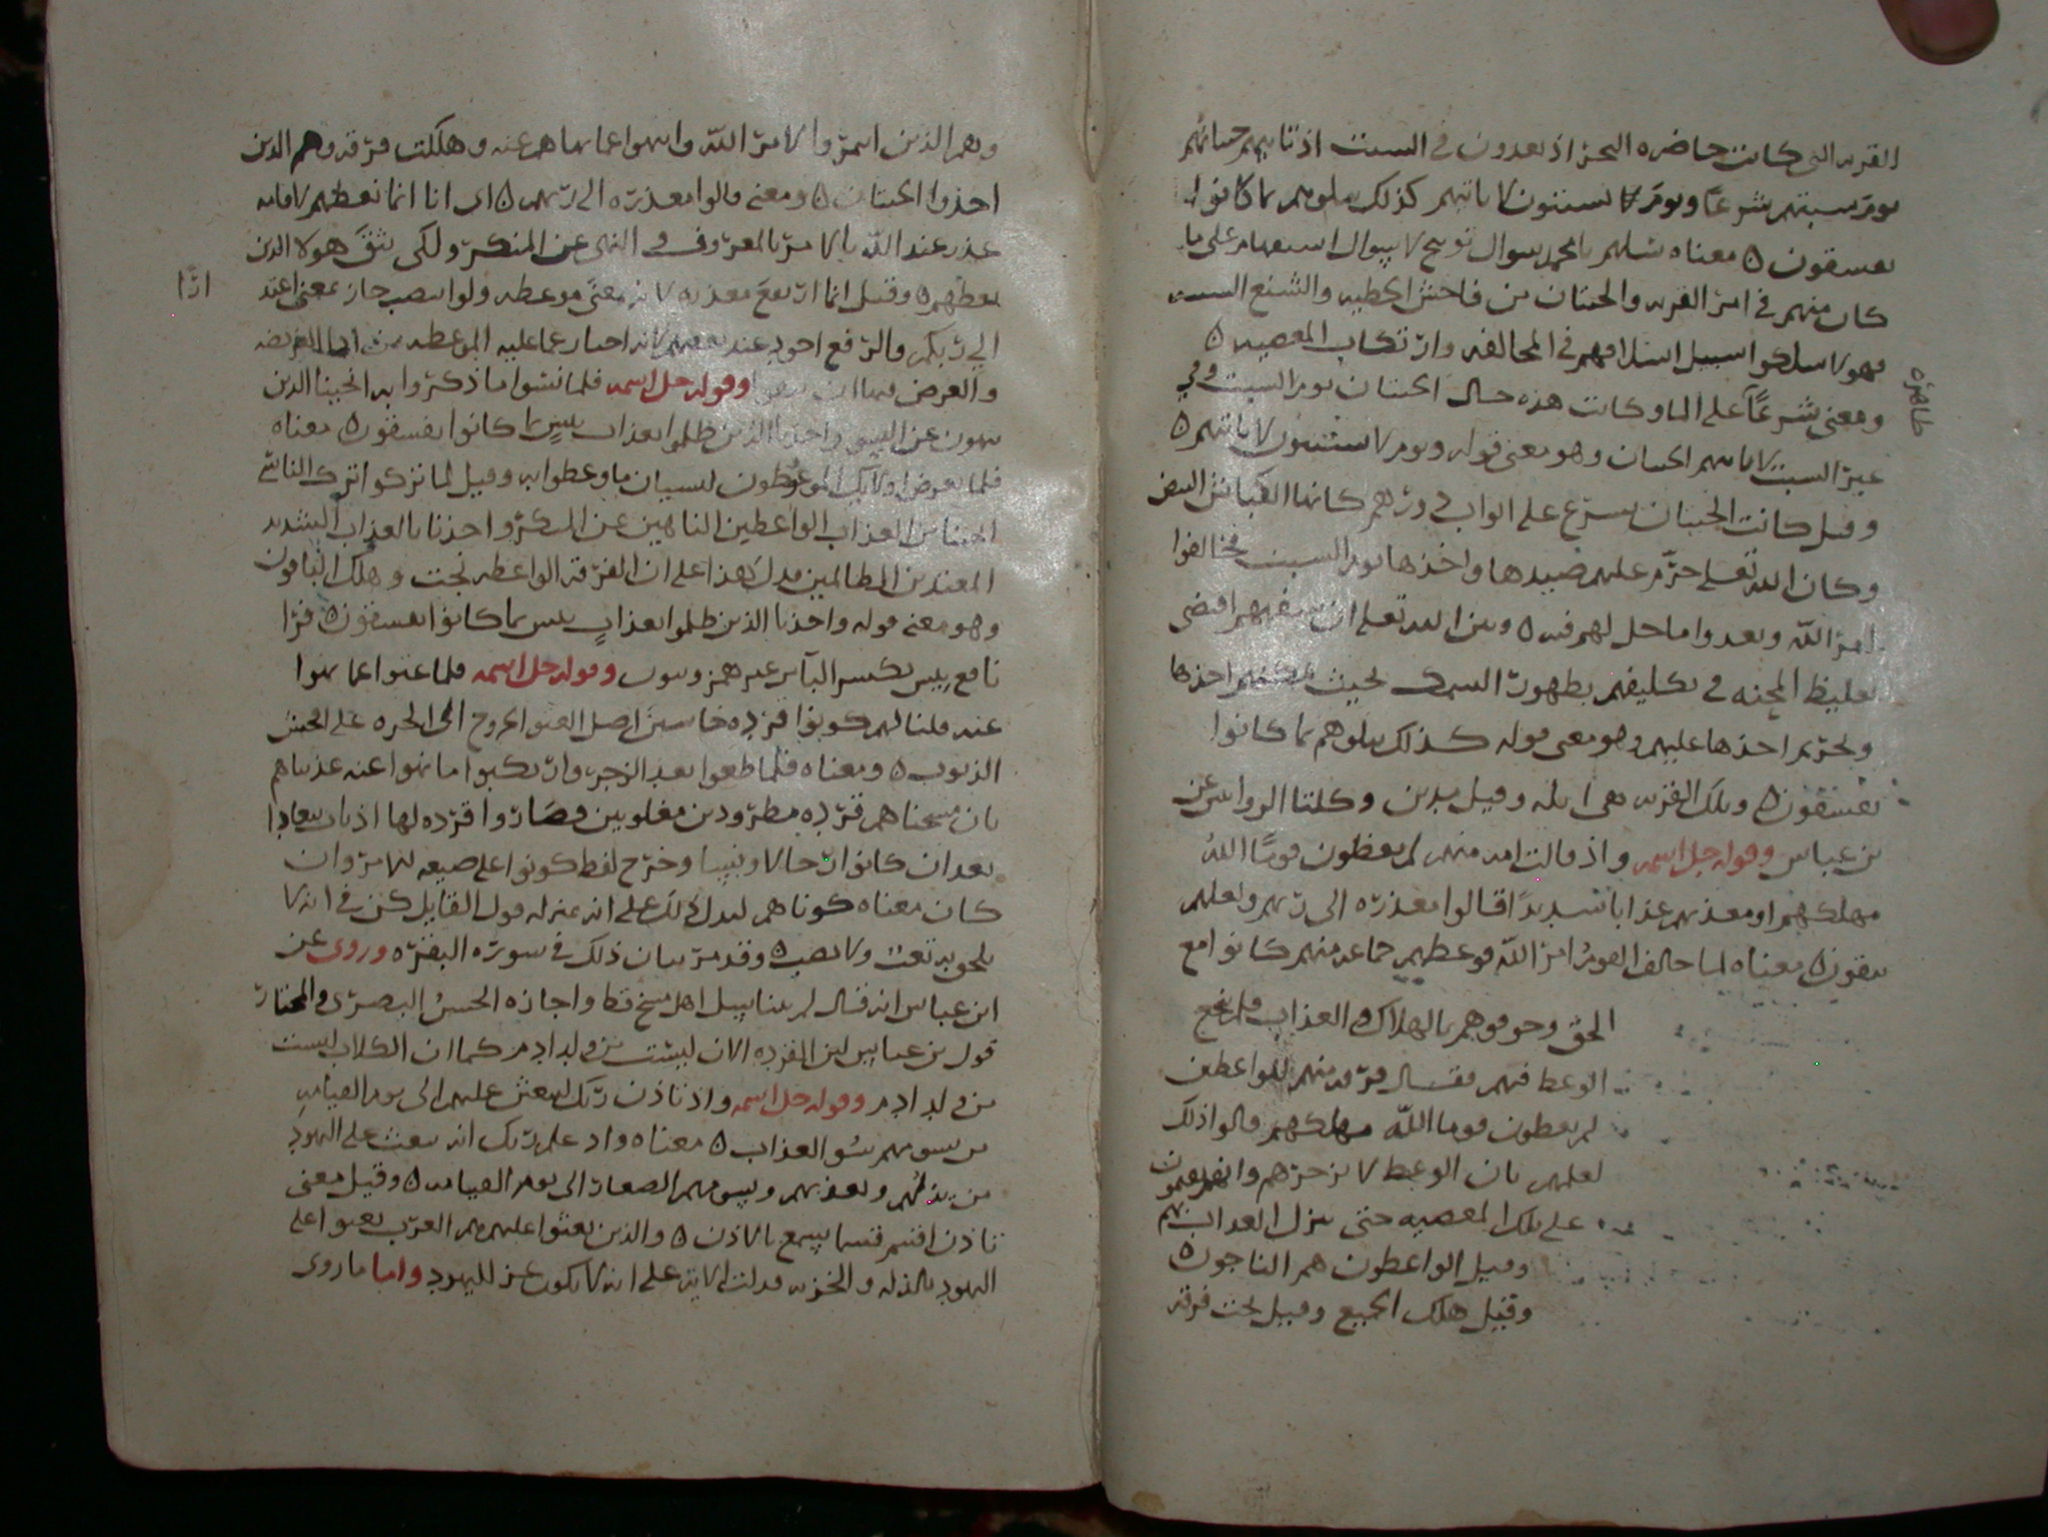 القريه التي كانت حاضره البحر اذ يعدون في السبت اذ تاتيهم حيتانهم
يوم سبتهم شرعًا ويوم لا يسبتون لا تاتيهم كذلك نبلوهم بما كانوا
يفسقون ٥ معناه سلهم يا محمد سوال توبيخ لا سوال استفهام على ما
كان منهم في امر القريه والحيتان من فاحش الخطيه والشنع السبت
فهولا سلكوا سبيل اسلافهم في المخالفه وارتكاب المعصيه ٥
ومعنى شرعًا على الما وكانت هذه حال الحيتان يوم السبت وفي
ظاهره
غير السبت لا تاتيهم الحيتان وهو معنى قوله ويوم لا يسبتون لا تاتيهم ٥
وقيل كانت الحيتان تشرع على ابواب دورهم كانها الكباش البيض
وكان الله تعلى حرم عليهم صيدها واخذها يوم السبت فخالفوا
امر الله وتعدوا ما حل لهم فيه ٥ وبين الله تعلى ان فسقهم اقتضى
تغليظ المحنه في تكليفهم بظهور السمك بحيث يمكنهم اخذها
وتحريم اخذها عليهم وهو معنى قوله كذلك نبلوهم بما كانوا
يفسقون ٥ وتلك القريه هي ايله وقيل مدين وكلتا الروايتين عن
بن عباس وقوله جل اسمه واذ قالت امه منهم لم تعظون قومًا الله
مهلكهم او معذبهم عذابا شديدًا قالوا معذره الى ربهم ولعلهم
يتقون ٥ معناه لما خالف القوم امر الله فوعظهم جماعه منهم كانوا مع
الحق وخوفوهم بالهلاك والعذاب فلم ينجع
الوعظ فيهم فقال فرقه منهم للواعظين
لم تعظون قوما الله مهلكهم قالوا ذلك
لعلمهم بان الوعظ لا يزجرهم وانهم يقيمون
على تلك المعصيه حتى ينزل العذاب بهم
وقيل الواعظون هم الناجون ٥
وقيل هلك الجميع وقيل نجت فرقه
وهم الذين ايتمروا لامر الله وانتهوا عما نهاهم عنه وهلكت فرقه وهم الذين
اخذوا الحيتان ٥ ومعنى قالوا معذره الى ربهم ٥ اي انا انما نعظهم لاقامه
عذر عند الله بالامر بالمعروف والنهي عن المنكر ولكي يتق هولا الذين
نعظهم ٥ وقيل انما ارتفع معذره لانه بمعنى موعظه ولو انتصب جاز بمعنى اعتذ
ارًا
الى ربكم والرفع اجود عند بعضهم لانه اخبار عما عليه الموعظه من ادا الفريضه
والغرض فيها ان يتقوا وقوله جل اسمه فلما نسوا ما ذكروا به انجينا الذين
ينهون عن السوء واخذنا الذين ظلموا بعذاب بيس بما كانوا يفسقون ٥ معناه
فلما تعرض اولئك الموعوظون لنسيان ما وعظوا به وقيل لما تركوا ترك الناسي
انجينا من العذاب الواعظين الناهين عن المنكر واخذنا بالعذاب الشديد
المعتدين الظالمين فدل هذا على ان الفرقه الواعظه نجت وهلك الباقون
وهو معنى قوله واخذنا الذين ظلموا بعذابٍ بيس بما كانوا يفسقون ٥ قرا
نافع بيس بكسر البا من غير همز وتنوين وقوله جل اسمه فلما عتوا عما نهوا
عنه قلنا لهم كونوا قرده خاسين اصل العتو الخروج الى الجره على افحش
الذنوب ٥ ومعناه فلما طغوا بعد الزجر وارتكبوا ما نهوا عنه عذبناهم
بان مسخناهم قرده مطرودين مغلوبين فصاروا قرده لها اذناب تعاوا
بعد ان كانوا رجالا ونسا وخرج لفظ كونوا على صيغه الامر وان
كان معناه كوناهم ليدل ذلك على انه بمنزله قول القايل كن في انه لا
يلحق به تعب ولا نصب ٥ وقد مر بيان ذلك في سورة البقره وروى عن
ابن عباس انه قال لم يتناسل اهل مسخ قط واجازه الحسن البصرى والمختار
قول بن عباس لان القرده الان ليست من ولد ادم كما ان الكلاب ليست
من ولد ادم وقوله جل اسمه واذ تاذن ربك ليبعثن عليهم الى يوم القيامه
من يسومهم سُو العذاب ٥ معناه واذ علم ربك انه يبعث على اليهود
من يذلهم ويعذبهم ويسومهم الصغار الى يوم القيامه ٥ وقيل معنى
تاذن اقسم قسما يسمع بالاذن ٥ والذين بعثوا عليهم هم العرب بعثوا على
اليهود بالذله والخزيه فدلت الايه على انه لا يكون عز لليهود واما ما روى